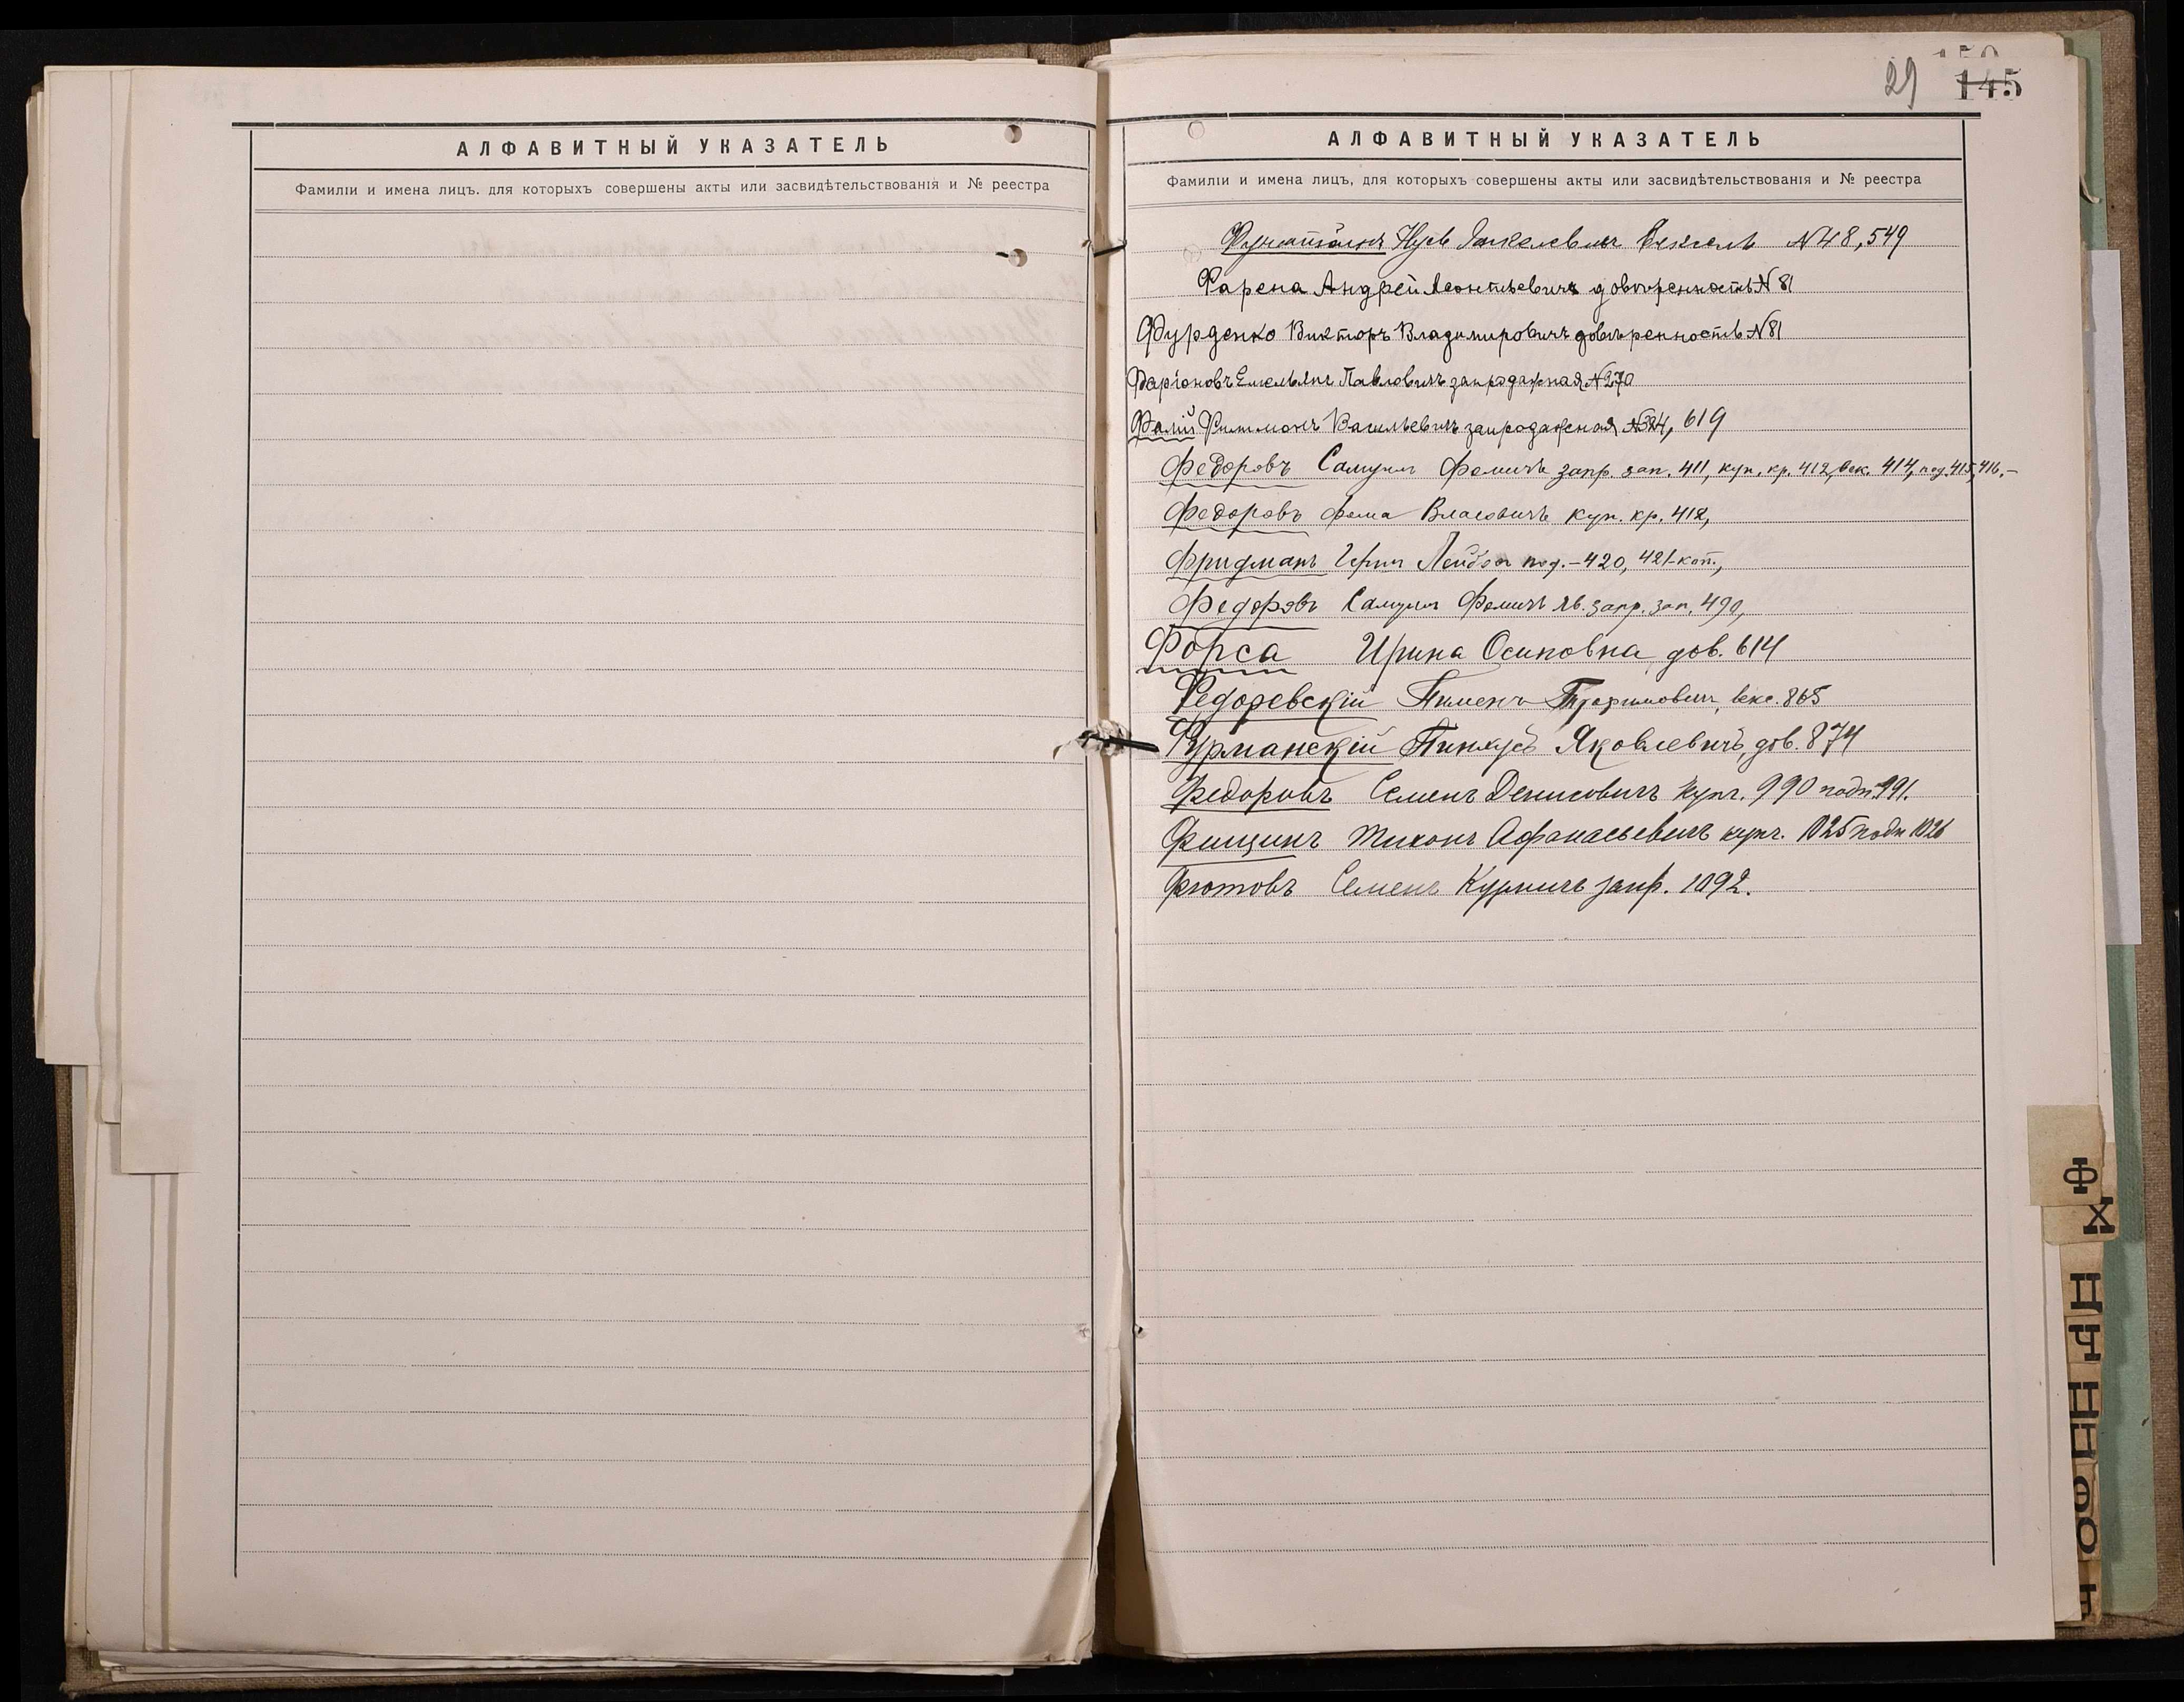 АЛФАВИТНЫЙ УКАЗАТЕЛЬ
Фамиліи и имена лицъ. для которыхъ совершены акты или засвидѣтельствованія и № реестра
29 145
АЛФАВИТНЫЙ УКАЗАТЕЛЬ
Фамиліи и имена лицъ, для которыхъ совершены акты или засвидѣтельствованія и № реестра
вексель №48, 549
Фарена Андрей Леонтьевичъ довѣренность №81
Фурденко Викторъ Владимировичъ довѣренность №81
Фаріоновъ Емельянъ Павловичъ запродажная №270
Фалій Филимонъ Васильевичъ запродажная №324, 619
Федоровъ Самуилъ Фомичъ запр. зап. 411, куп. кр. 412, век. 414, под. 415, 416.-
Федоровъ Фома Власовичъ куп. кр. 412,
Фридманъ Лейбов под.-420, 421-коп.,
Федоровъ Самуилъ Фомичъ яв. запр. зап. 490,
Форса Ирина Осиповна дов. 614
Федоревскій Пименъ Трофимовичъ, векс. 865
Фурманскій Пинхусъ Яковлевичъ, дов. 874
Федоровъ Семенъ Денисовичъ купч. 990 подп. 991.
Фищинъ Тихонъ Афанасьевичъ купч. 1025 подп 1026
Фютовъ Семенъ запр. 1092.
Ф
Х
Ц
Ч